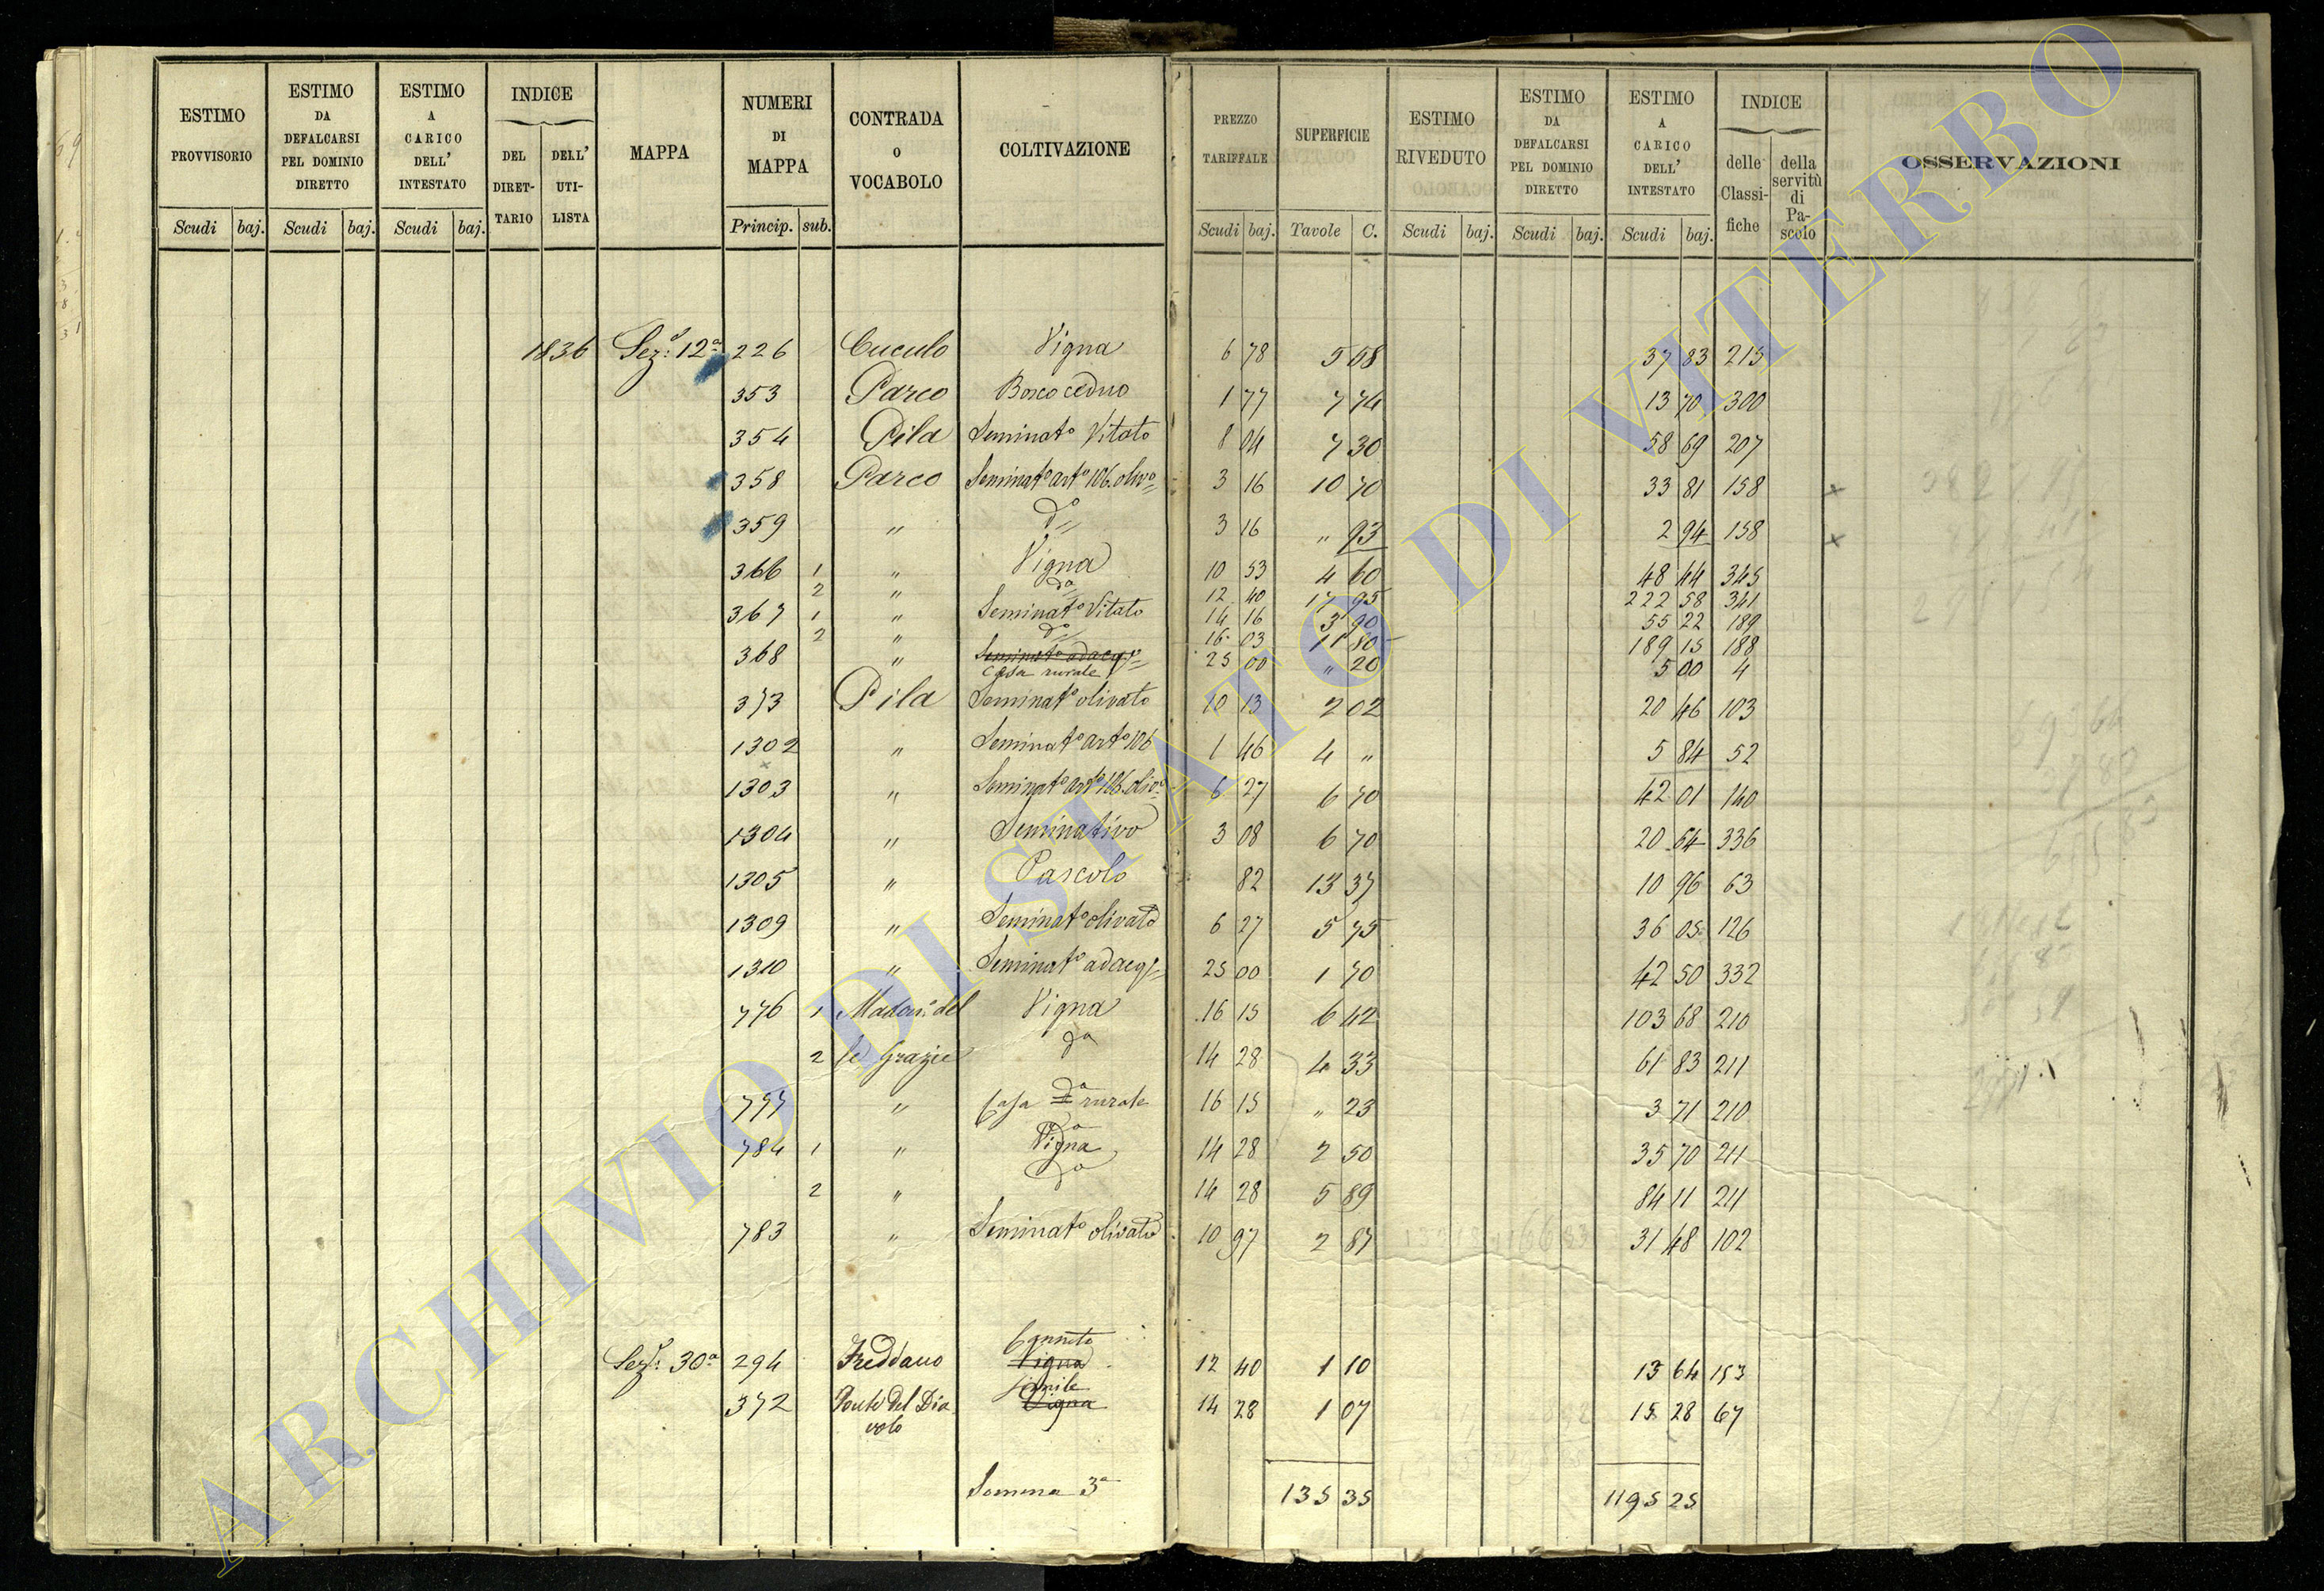 ESTIMO PROVVISORIO | ESTIMO DA DEFALCARSI PEL DOMINIO DIRETTO | ESTIMO A CARICO DELL' INTESTATO | INDICE DEL DIRETTARIO | DELL' UTILISTA | MAPPA | NUMERI DI MAPPA | CONTRADA O VOCABOLO | COLTIVAZIONE | PREZZO TARIFFALE | SUPERFICIE | ESTIMO RIVEDUTO | ESTIMO DA DEFALCARSI PEL DOMINIO DIRETTO | ESTIMO A CARICO DELL' INTESTATO | INDICE delle Classifiche | della servitù di Pascolo | OSSERVAZIONI
Scudi baj. | Scudi baj. | Scudi baj. | Princip. sub. | Scudi baj. | Tavole C. | Scudi baj. | Scudi baj. | Scudi baj.
1836 Sez: 12a 226 Cuculo Vigna 6 78 5 58 37 83 215
353 Parco Bosco ceduo 1 77 7 74 13 70 300
354 Pila Seminato Vitato 8 04 7 30 58 69 207
358 Parco Seminato arto 106. olivo 3 16 10 70 33 81 158 x
359 " do 3 16 " 93 2 94 158 x
366 1 " Vigna 10 53 4 60 48 44 345
2 " da 12 40 17 95 222 58 341
367 1 " Seminato Vitato 14 16 3 90 55 22 189
2 " do 16 03 11 80 189 15 188
368 " Seminato adacqo 25 00 " 20 5 00 4
Casa rurale
373 Pila Seminato olivato 10 13 2 02 20 46 103
1302 " Seminato arto 106 1 46 4 " 5 84 52
x
1303 " Seminato arto 106. olivo 6 27 6 70 42 01 140
1304 " Seminativo 3 08 6 70 20 64 336
1305 " Pascolo 82 13 37 10 96 63
1309 " Seminato olivato 6 27 5 75 36 05 126
1310 " Seminato adacqo 25 00 1 70 42 50 332
776 1 Madona del Vigna 16 15 6 42 103 68 210
2 le Grazie da 14 28 4 33 61 83 211
777 " Casa da rurale 16 15 " 23 3 71 210
784 1 " Vigna 14 28 2 50 35 70 211
2 " da 14 28 5 89 84 11 211
783 " Seminato olivato 10 97 2 87 31 48 102
Canneto
Sez: 30a 294 Freddano Vigna 12 40 1 10 13 64 153
simile
372 Ponte del Dia Vigna 14 28 1 07 15 28 67
volo
Somma 3a 135 35 1195 25
ARCHIVIO DI STATO DI VITERBO